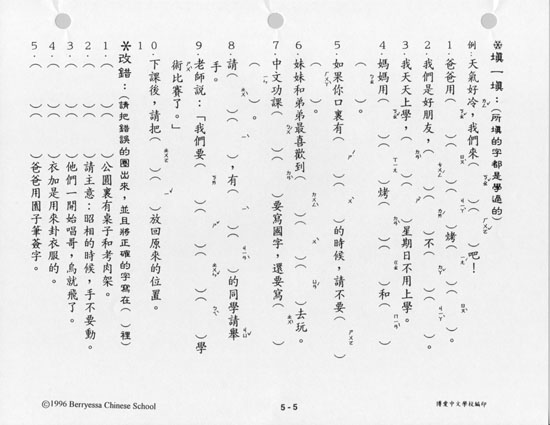 ※填一填：(所填的字都是學過的)
例：天氣好冷，我們來(　)(　)吧！
1 爸爸用(　)(　)烤(　)(　)。
2 我們是好朋友，(　)(　)不(　)(　)。
3 我天天上學，(　)(　)星期日不用上學。
4 媽媽用(　)(　)烤(　)(　)和(　)
(　)。
5 如果你口裏有(　)(　)的時候，請不要(　)
(　)。
6 妹妹和弟弟最喜歡到(　)(　)(　)去玩。
7 中文功課(　)(　)要寫國字，還要寫(　)
(　)(　)。
8 請(　)(　)(　)，有(　)(　)的同學請舉
手。
9 老師說：「我們要(　)(　)(　)(　)學
術比賽了。」
10 下課後，請把(　)(　)(　)放回原來的位置。
※改錯：(請把錯誤的圈出來，並且將正確的字寫在(　)裡
1 (　)(　)(　)公園裏有桌子和老肉架。
2 (　)(　)(　)請主意：昭相的時候，手不要動。
3 (　)(　)(　)他們一開始唱哥，烏就飛了。
4 (　)(　)(　)衣加是用來卦衣服的。
5 (　)(　)(　)爸爸用團子筆簽字。
©1996 Berryessa Chinese School
5 - 5
博愛中文學校編印